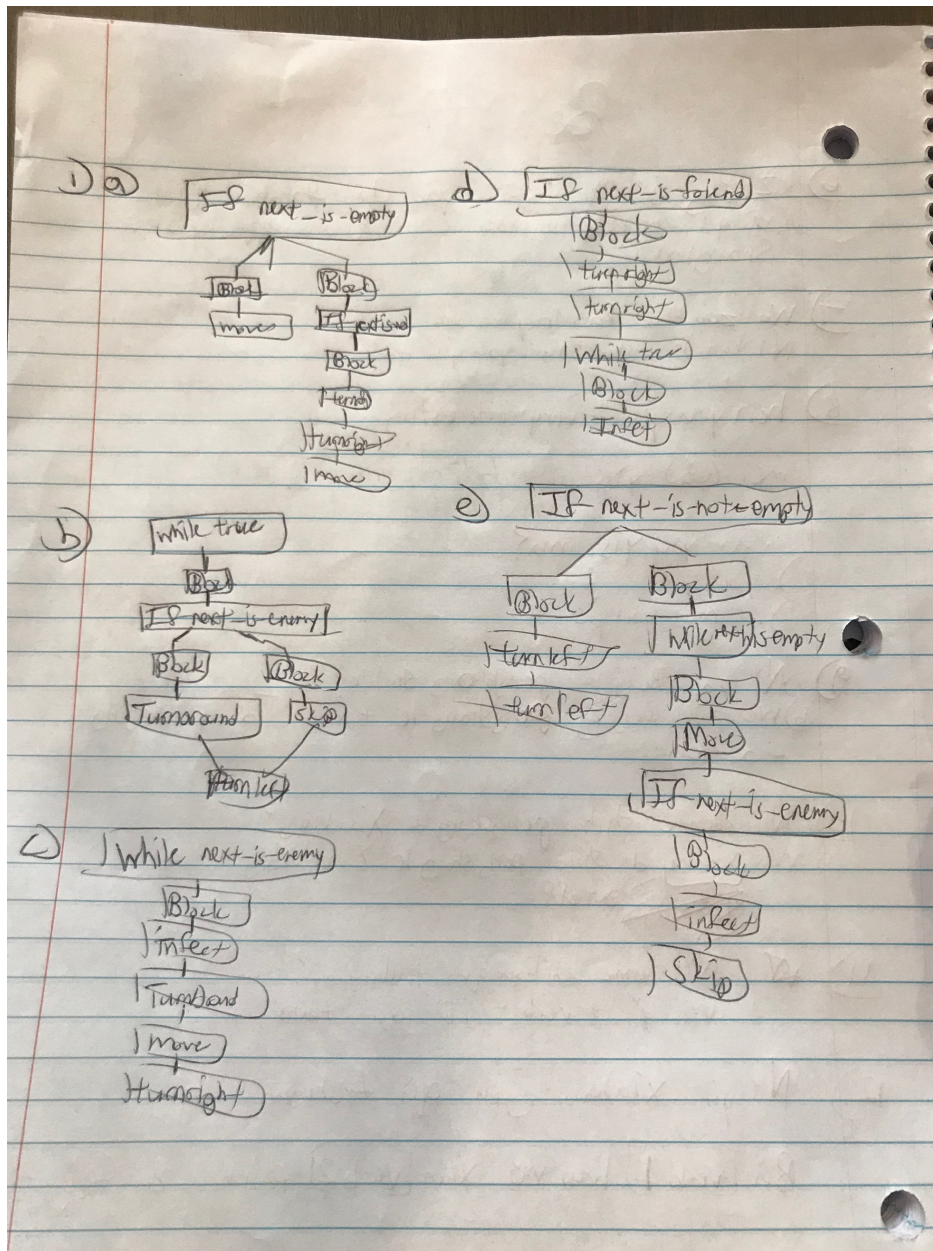 1) a)
If next_is_empty
Block Block
move If
Block
turnright
move
b)
while true
Block
If next_is_enemy
Block Block
Turnaround Skip
turnleft
c)
While next_is_enemy
Block
infect
move
turnright
d)
If next_is_foiend
Block
turnright
turnright
While true
Block
Infet
e)
If next_is_not_empty
Block Block
turnleft While next is empty
turnleft Block
Move
If next_is_enemy
Block
infect
Skip